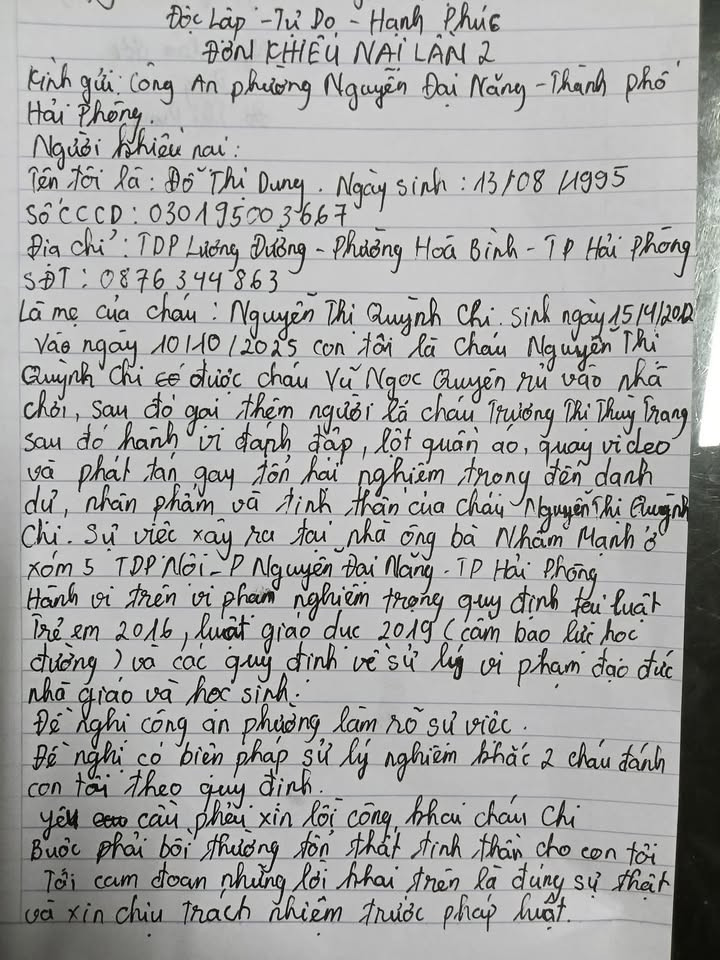 Độc Lập - Tự Do - Hạnh Phúc
ĐƠN KHIẾU NẠI LẦN 2
Kính gửi: Công An phường Nguyễn Đại Năng - Thành phố
Hải Phòng.
Người khiếu nại:
Tên tôi là: Đỗ Thị Dung. Ngày sinh: 13/08/1995
Số CCCD: 030195003667
Địa chỉ: TDP Lương Đường - Phường Hoà Bình - TP Hải Phòng
SĐT: 0876344863
Là mẹ của cháu: Nguyễn Thị Quỳnh Chi. Sinh ngày 15/4/2012
Vào ngày 10/10/2025 con tôi là cháu Nguyễn Thị
Quỳnh Chi có được cháu Vũ Ngọc Quyên rủ vào nhà
chơi, sau đó gọi thêm người là cháu Trương Thị Thuỳ Trang
sau đó hành vi đánh đập, lột quần áo, quay video
và phát tán gây tổn hại nghiêm trọng đến danh
dự, nhân phẩm và tinh thần của cháu Nguyễn Thị Quỳnh
Chi. Sự việc xảy ra tại nhà ông bà Nhâm Mạnh ở
xóm 5 TDP Nội - P Nguyễn Đại Năng - TP Hải Phòng
Hành vi trên vi phạm nghiêm trọng quy định tại luật
Trẻ em 2016, luật giáo dục 2019 (cấm bạo lực học
đường) và các quy định về sử lý vi phạm đạo đức
nhà giáo và học sinh.
Đề nghị công an phường làm rõ sự việc.
Đề nghị có biện pháp sử lý nghiêm khắc 2 cháu đánh
con tôi theo quy định.
Yêu cầu phải xin lỗi công khai cháu Chi
Buộc phải bồi thường tổn thất tinh thần cho con tôi
Tôi cam đoan những lời khai trên là đúng sự thật
và xin chịu trách nhiệm trước pháp luật.